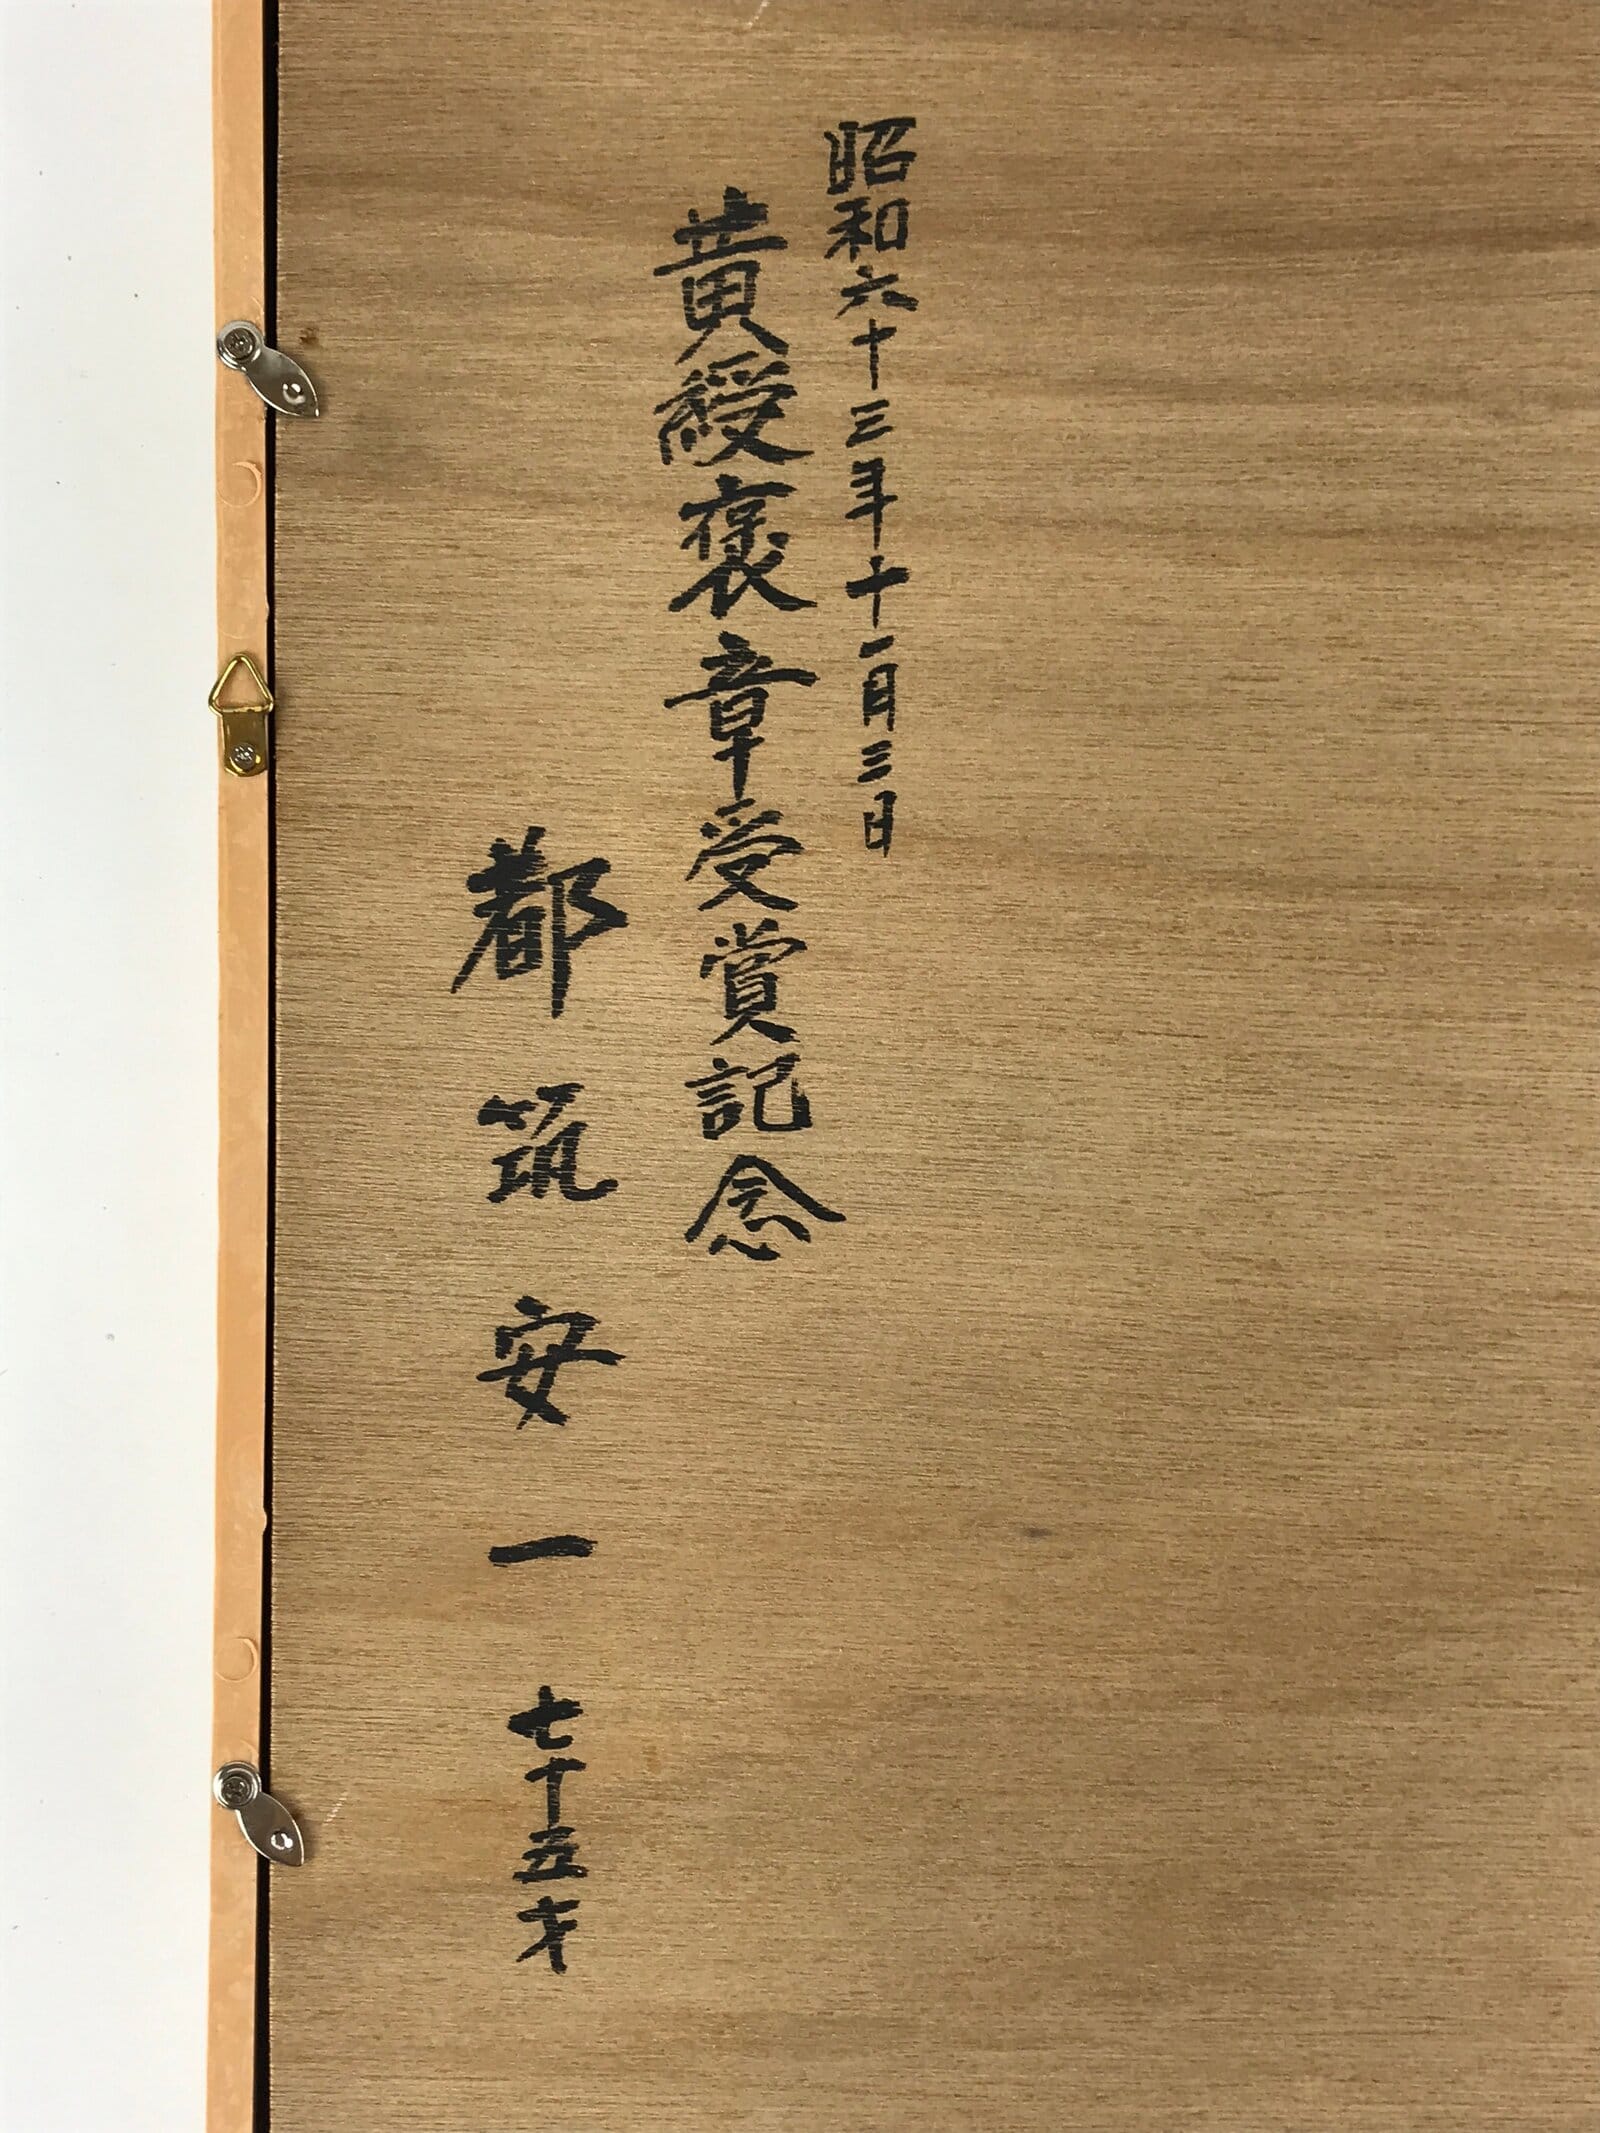 昭和六十三年十一月三日
黄綬褒章受賞記念
都筑安一 七十五才